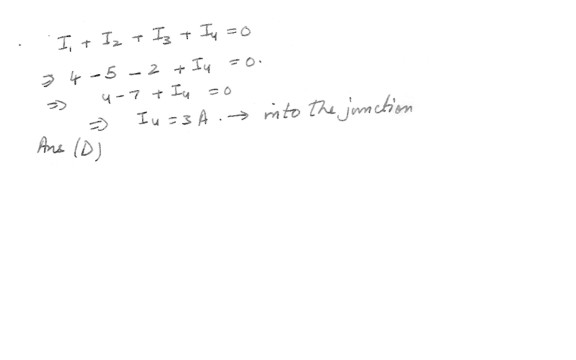 I₁ + I₂ + I₃ + I₄ = 0
⇒ 4 - 5 - 2 + I₄ = 0.
⇒ 4 - 7 + I₄ = 0
⇒ I₄ = 3 A. → into the junction
Ans (D)